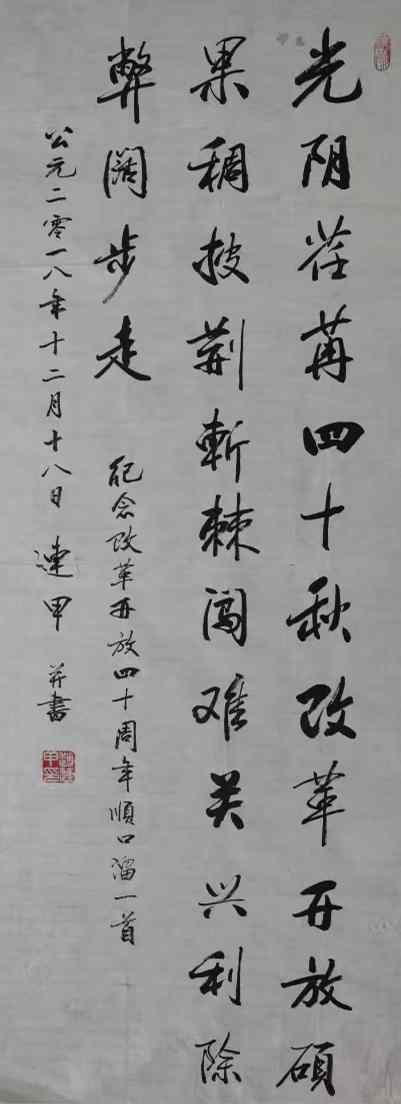 光阴荏苒四十秋改革开放硕
果稠披荆斩棘闯难关兴利除
弊阔步走
纪念改革开放四十周年顺口溜一首
公元二零一八年十二月十八日 连甲 并书